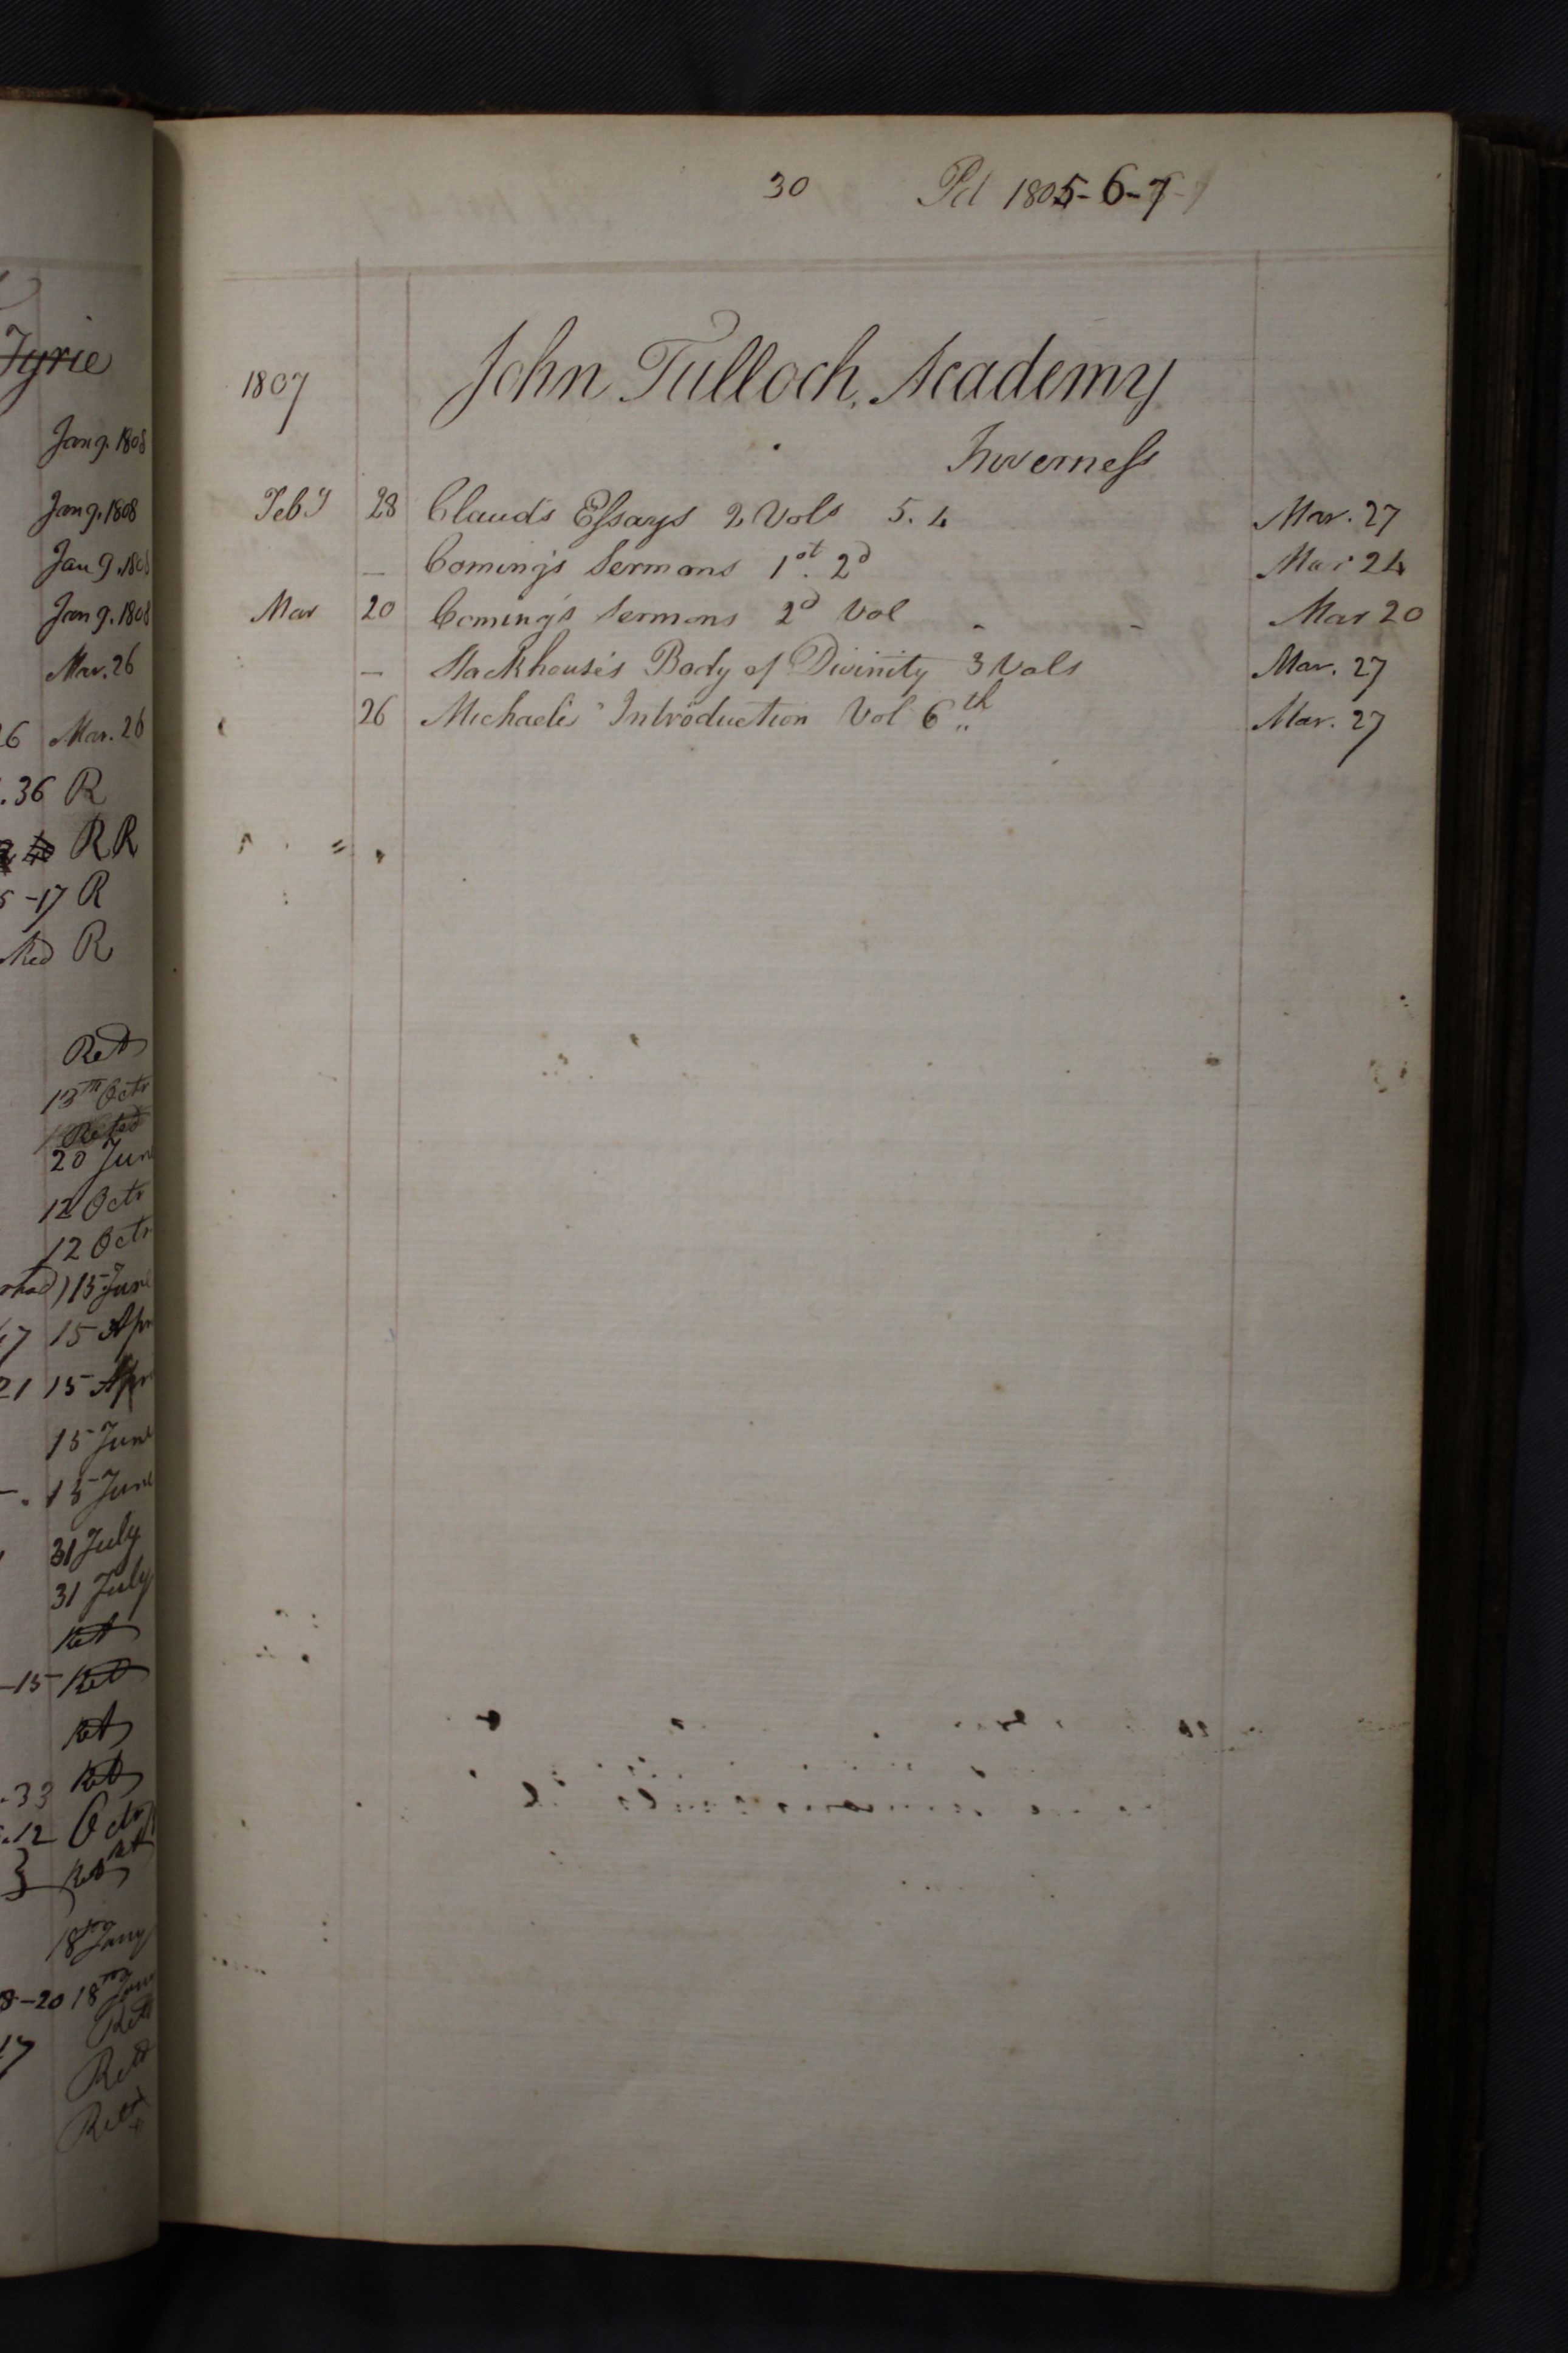 Tyrie
Jan 9. 1808
Jan 9. 1808
Jan 9. 180
Jan 9. 1808
Mar. 26
26 Mar. 26
.36 R
RR
-17 R
R
Ret
13th Octr
20 Jun
12 Octr
12 Octr
15 June
15 Apr
21 15 Apr
15 June
15 June
31 July
31 July
Ret
-15 Ret
Ret
.33 Ret
.12 Octr
Ret
18th Jany
8-20 18th Jan
17 Ret
Retd
Retd
30 Pd 1805-6-7
1807 John Tulloch, Academy
Inverness
Feby 28 Claud's Essays 2 Vols 5. 4 Mar. 27
— Coming's Sermons 1st. 2d Mar 24
Mar 20 Coming's Sermons 2d Vol - - Mar 20
— Stackhouse's Body of Divinity 3 Vols Mar. 27
26 Michaeli's Introduction Vol 6th Mar. 27